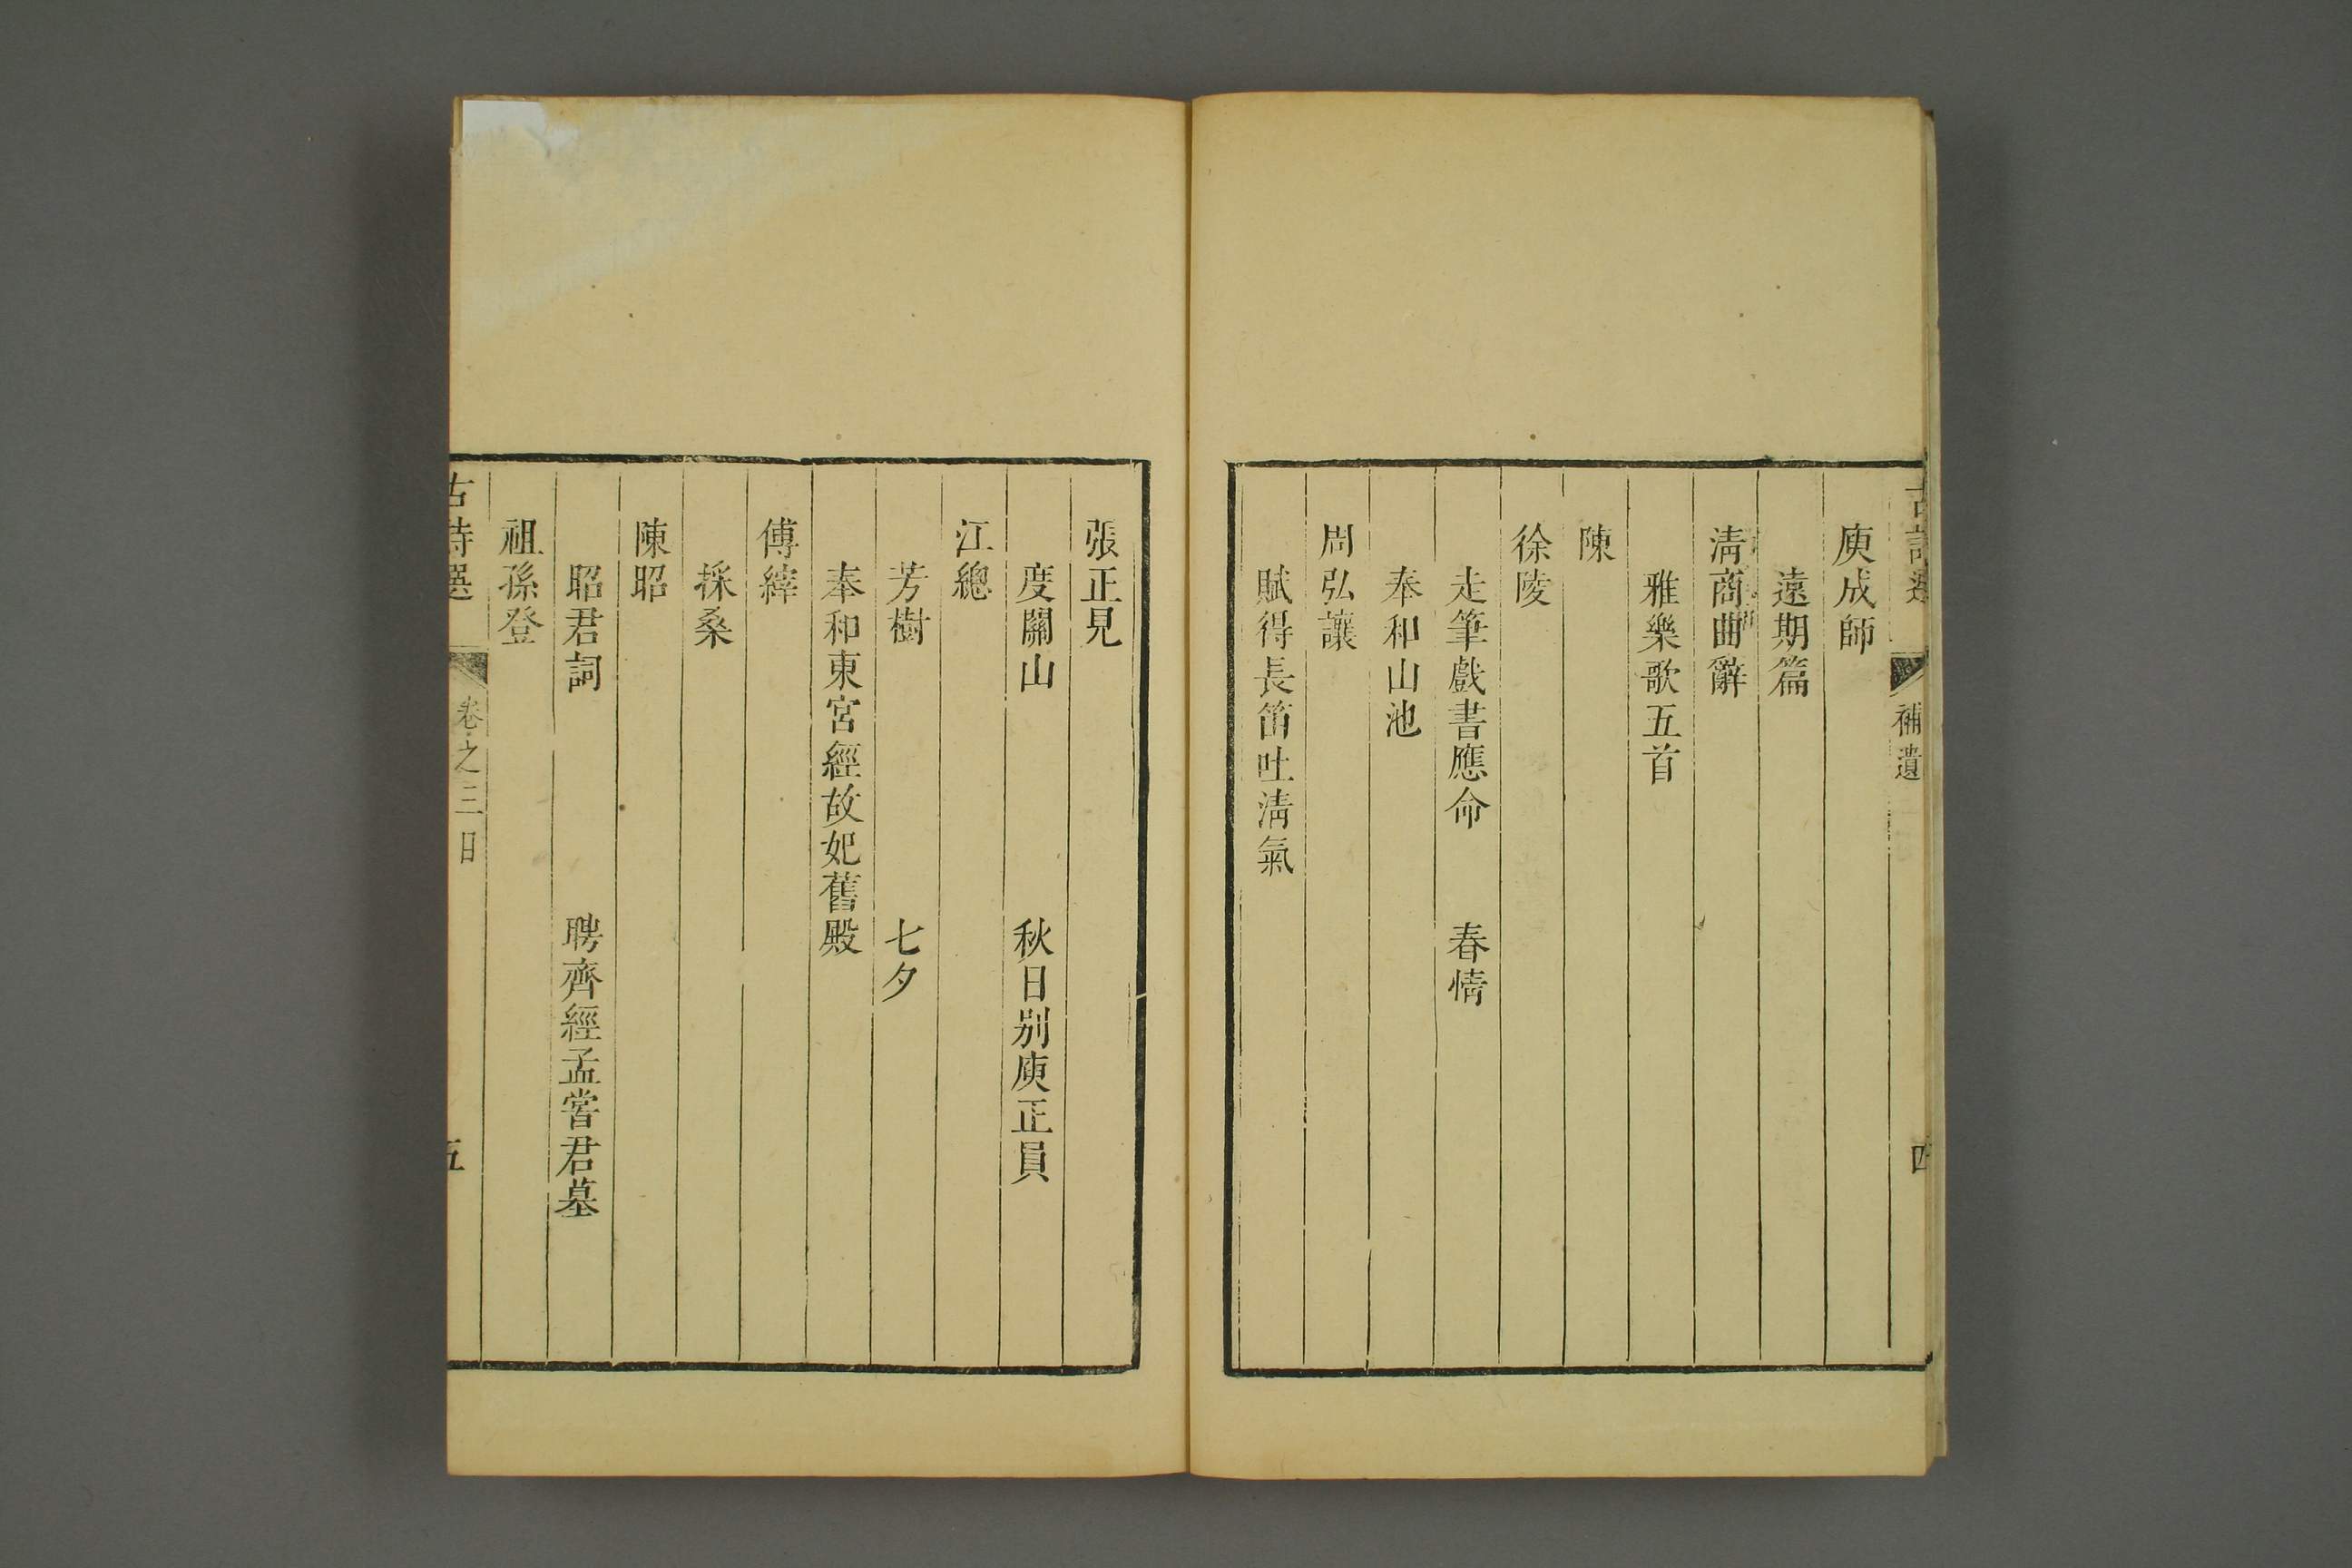 補遺
庾成師
遠期篇
清商曲辭
雅樂歌五首
陳
徐陵
走筆戲書應命 春情
奉和山池
周弘讓
賦得長笛吐清氣
張正見
度關山 秋日别庾正員
江總
芳樹 七夕
奉和東宮經故妃舊殿
傅縡
採桑
陳昭
昭君詞 聘齊經孟嘗君墓
祖孫登
古詩選 卷之三目 五